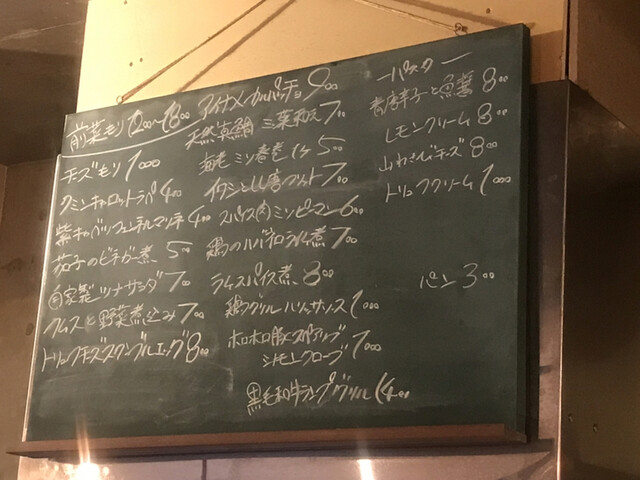 前菜モリ 1200〜1800
チーズモリ 1000
クミンキャロットラペ 400
紫キャベツフェンネルマリネ 400
茄子のビネガー煮 500
自家製ツナサラダ 700
クムスと野菜煮込み 700
トリュフチーズスクランブルエッグ 800
アイナメカルパッチョ 900
天然真鯛 三葉和え 700
海老ミソ春巻 1ヶ 500
イワシとしし唐フリット 700
スパイス肉ミソピーマン 600
鶏のハバネロラルム煮 700
ラムスパイス煮 800
鶏グリル ハリッサソース 1000
ホロホロ豚スペアリブ
シナモンクローブ 1000
黒毛和牛ランプグリル 1400
ーパスターー
青唐辛子と魚醤 800
レモンクリーム 800
山わさびチーズ 800
トリュフクリーム 1000
パン 300